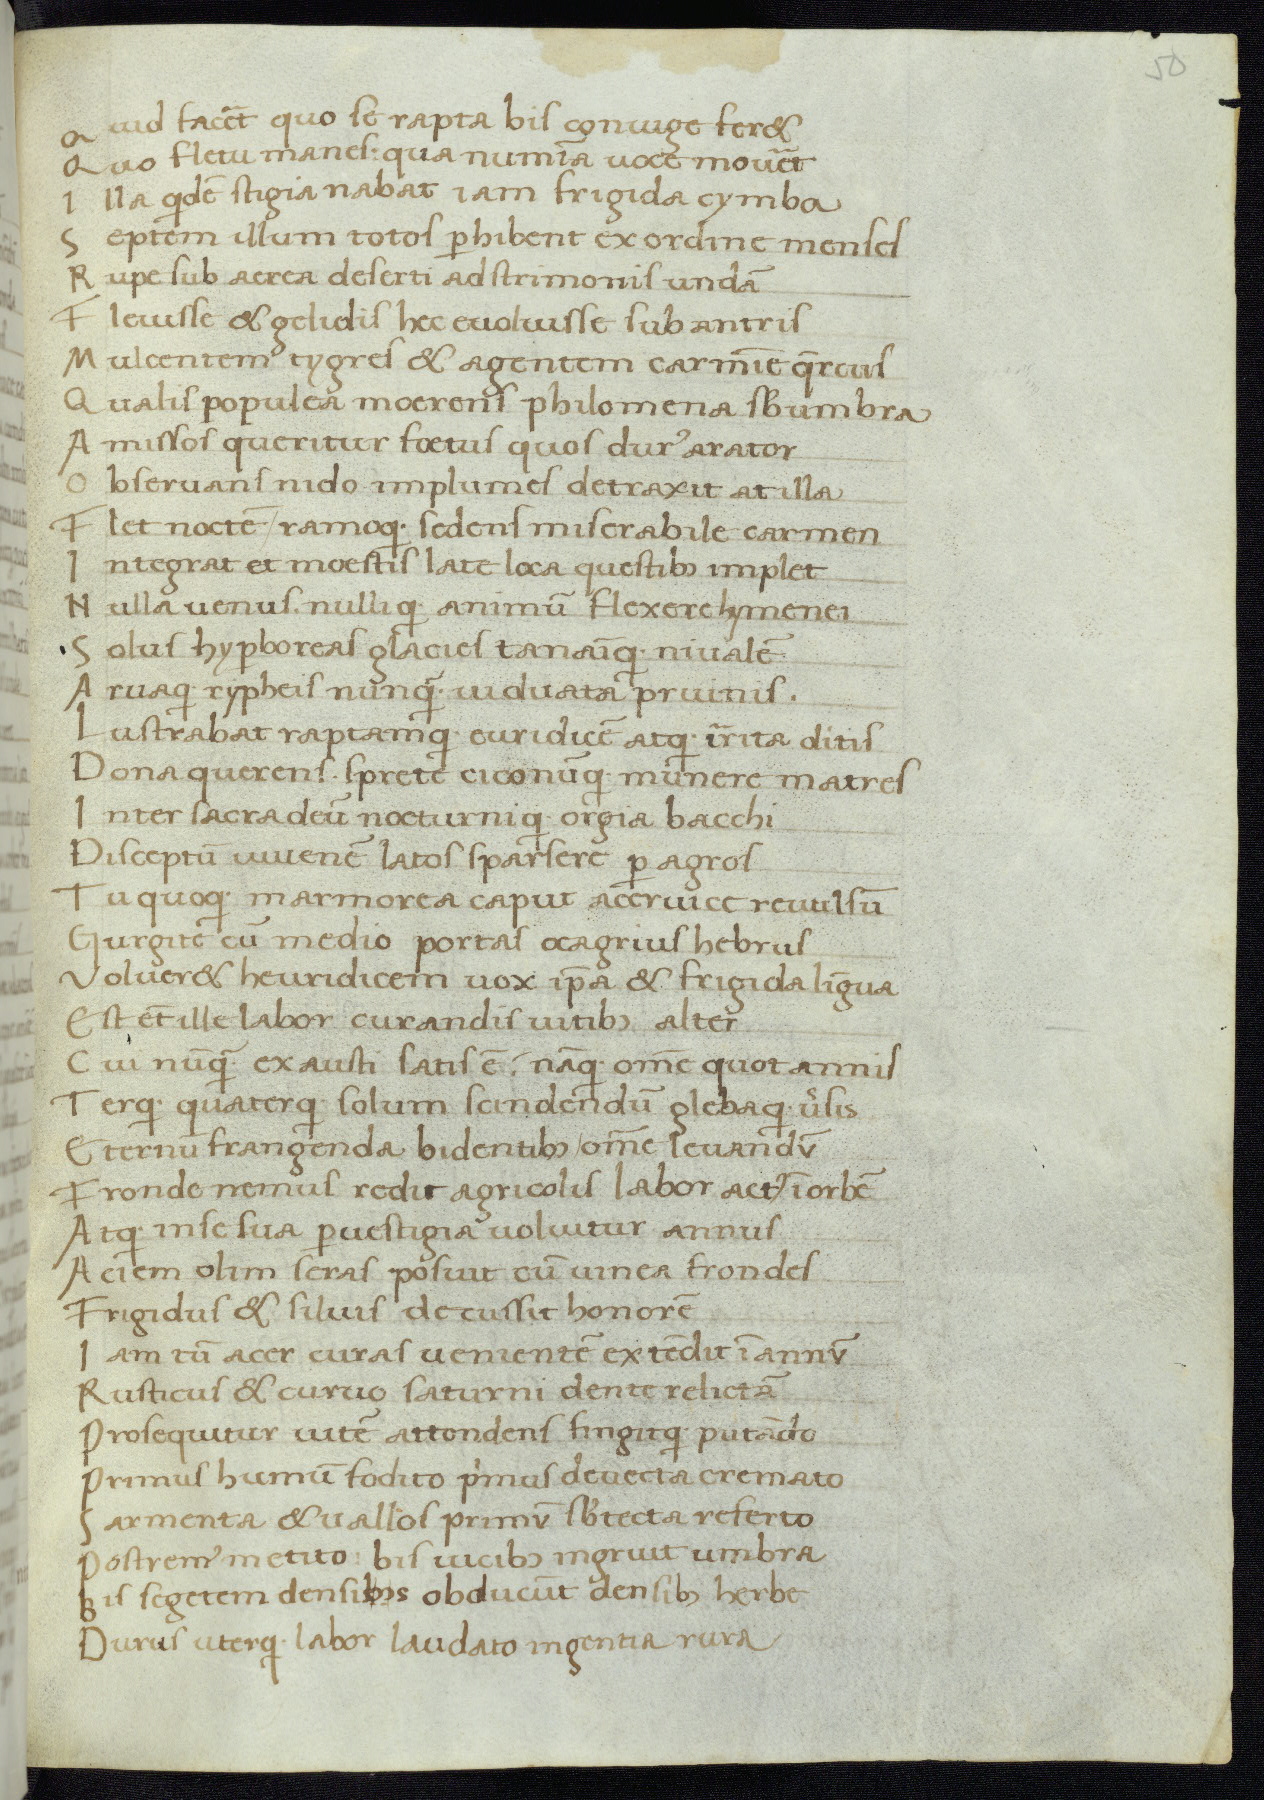 50
Quid facet̄ quo se rapta bis coniuge fer&
Quo fletu manes: qua numīa uoce mouēt
Illa qidē stigia nabat iam frigida cymba
Septem illum totos ꝑhibent ex ordine menses
Rupe sub aerea deserti ad strimonis undā
Fleuisse & gelidis hec euoluisse sub antris
Mulcentem tygres & agentem carmīe q̄rcus
Qualis populea moerens philomena sƀ umbra
Amissos queritur foetus quos durꝰ arator
Obseruans nido implumes detraxit at illa
Flet noctē / ramoq; sedens miserabile carmen
Integrat et moestis late loca questibꝫ implet
Nulla uenus. nulliq; animū flexere hymenei
Solus hyꝑboreas glacies tanaīq; niualē
Aruaq; rypheis nunq̄; uiduata pruinis.
Lustrabat raptamq; euridicē atq; ir̄rita ditis
Dona querens. spretē ciconūq; munere matres
Inter sacra deū nocturniq; orgia bacchi
Disceptū iuuenē latos sparsere ꝑ agros
Tu quoq; marmorea caput aceruice reuulsū
Gurgite cū medio portas oeagrius hebrus
Voluer& heuridicem uox ip̄a & frigida lingua
Est et̄ ille labor curandis uitibꝫ alter
Cui nūq̄; exausti satis ē; nāq; om̄e quot annis
Terq; quaterq; solum scindendū glebaq; u̓sis
Eternū frangenda bidentibꝫ / om̄e leuandū
Fronde nemus redit agricolis labor actꝰ ī orbē
Atq; in se sua ꝑ uestigia uoluitur annus
Aciem olim seras posuit cū uinea frondes
Frigidus & siluis decussit honorē
Iam tū acer curas uenientē extēdit ī annū
Rusticus & curuo saturni dente relictā
Prosequitur uitē attondens fingitq; putādo
Primus humū fodito p̓mus deuecta cremato
Sarmenta & uallos primū sƀ tecta referto
Postremꝰ metito: bis uicibꝫ ingruit umbra
Bis segetem densibꝫs obducūt densibꝫ herbe
Durus uterq; labor laudato ingentia rura